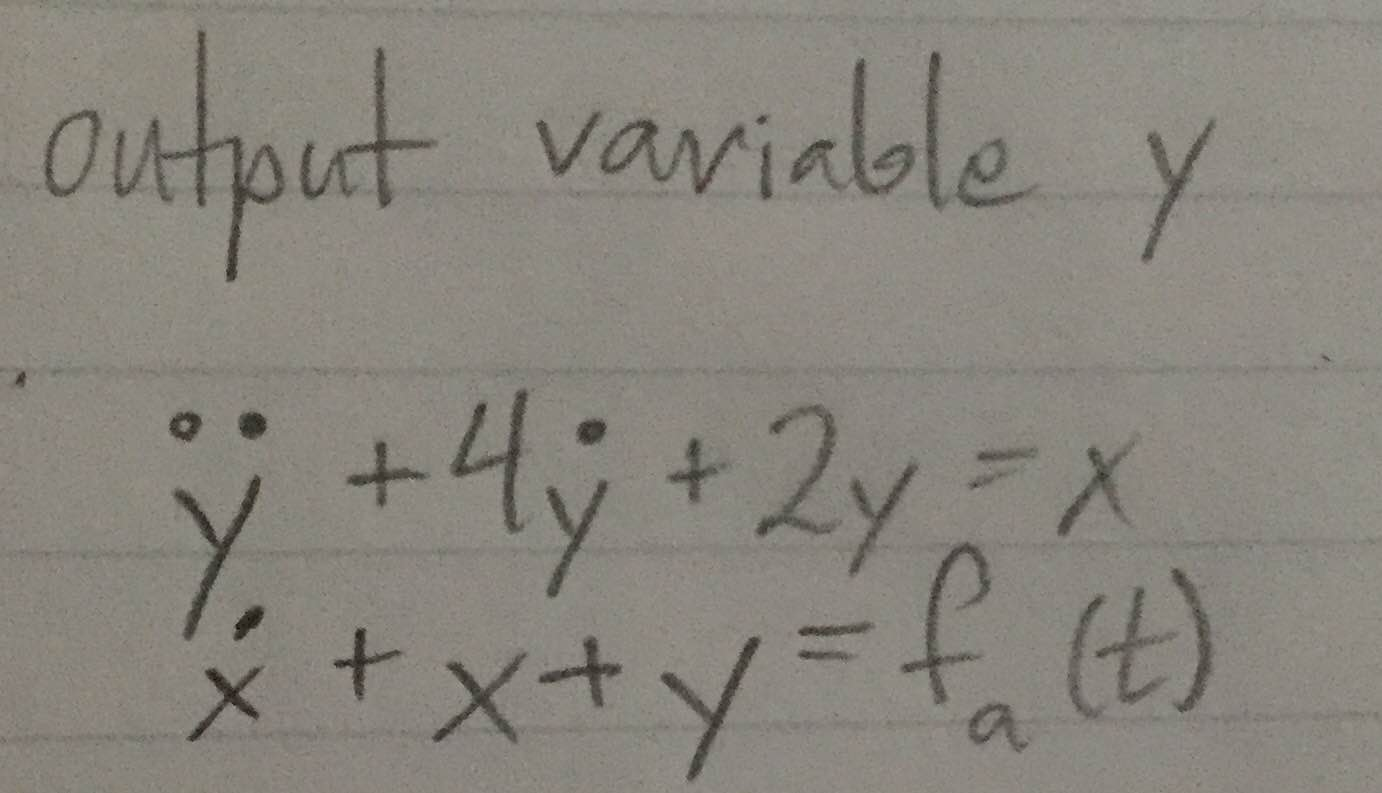 output variable y
ÿ + 4ẏ + 2y = x
ẋ + x + y = fₐ(t)